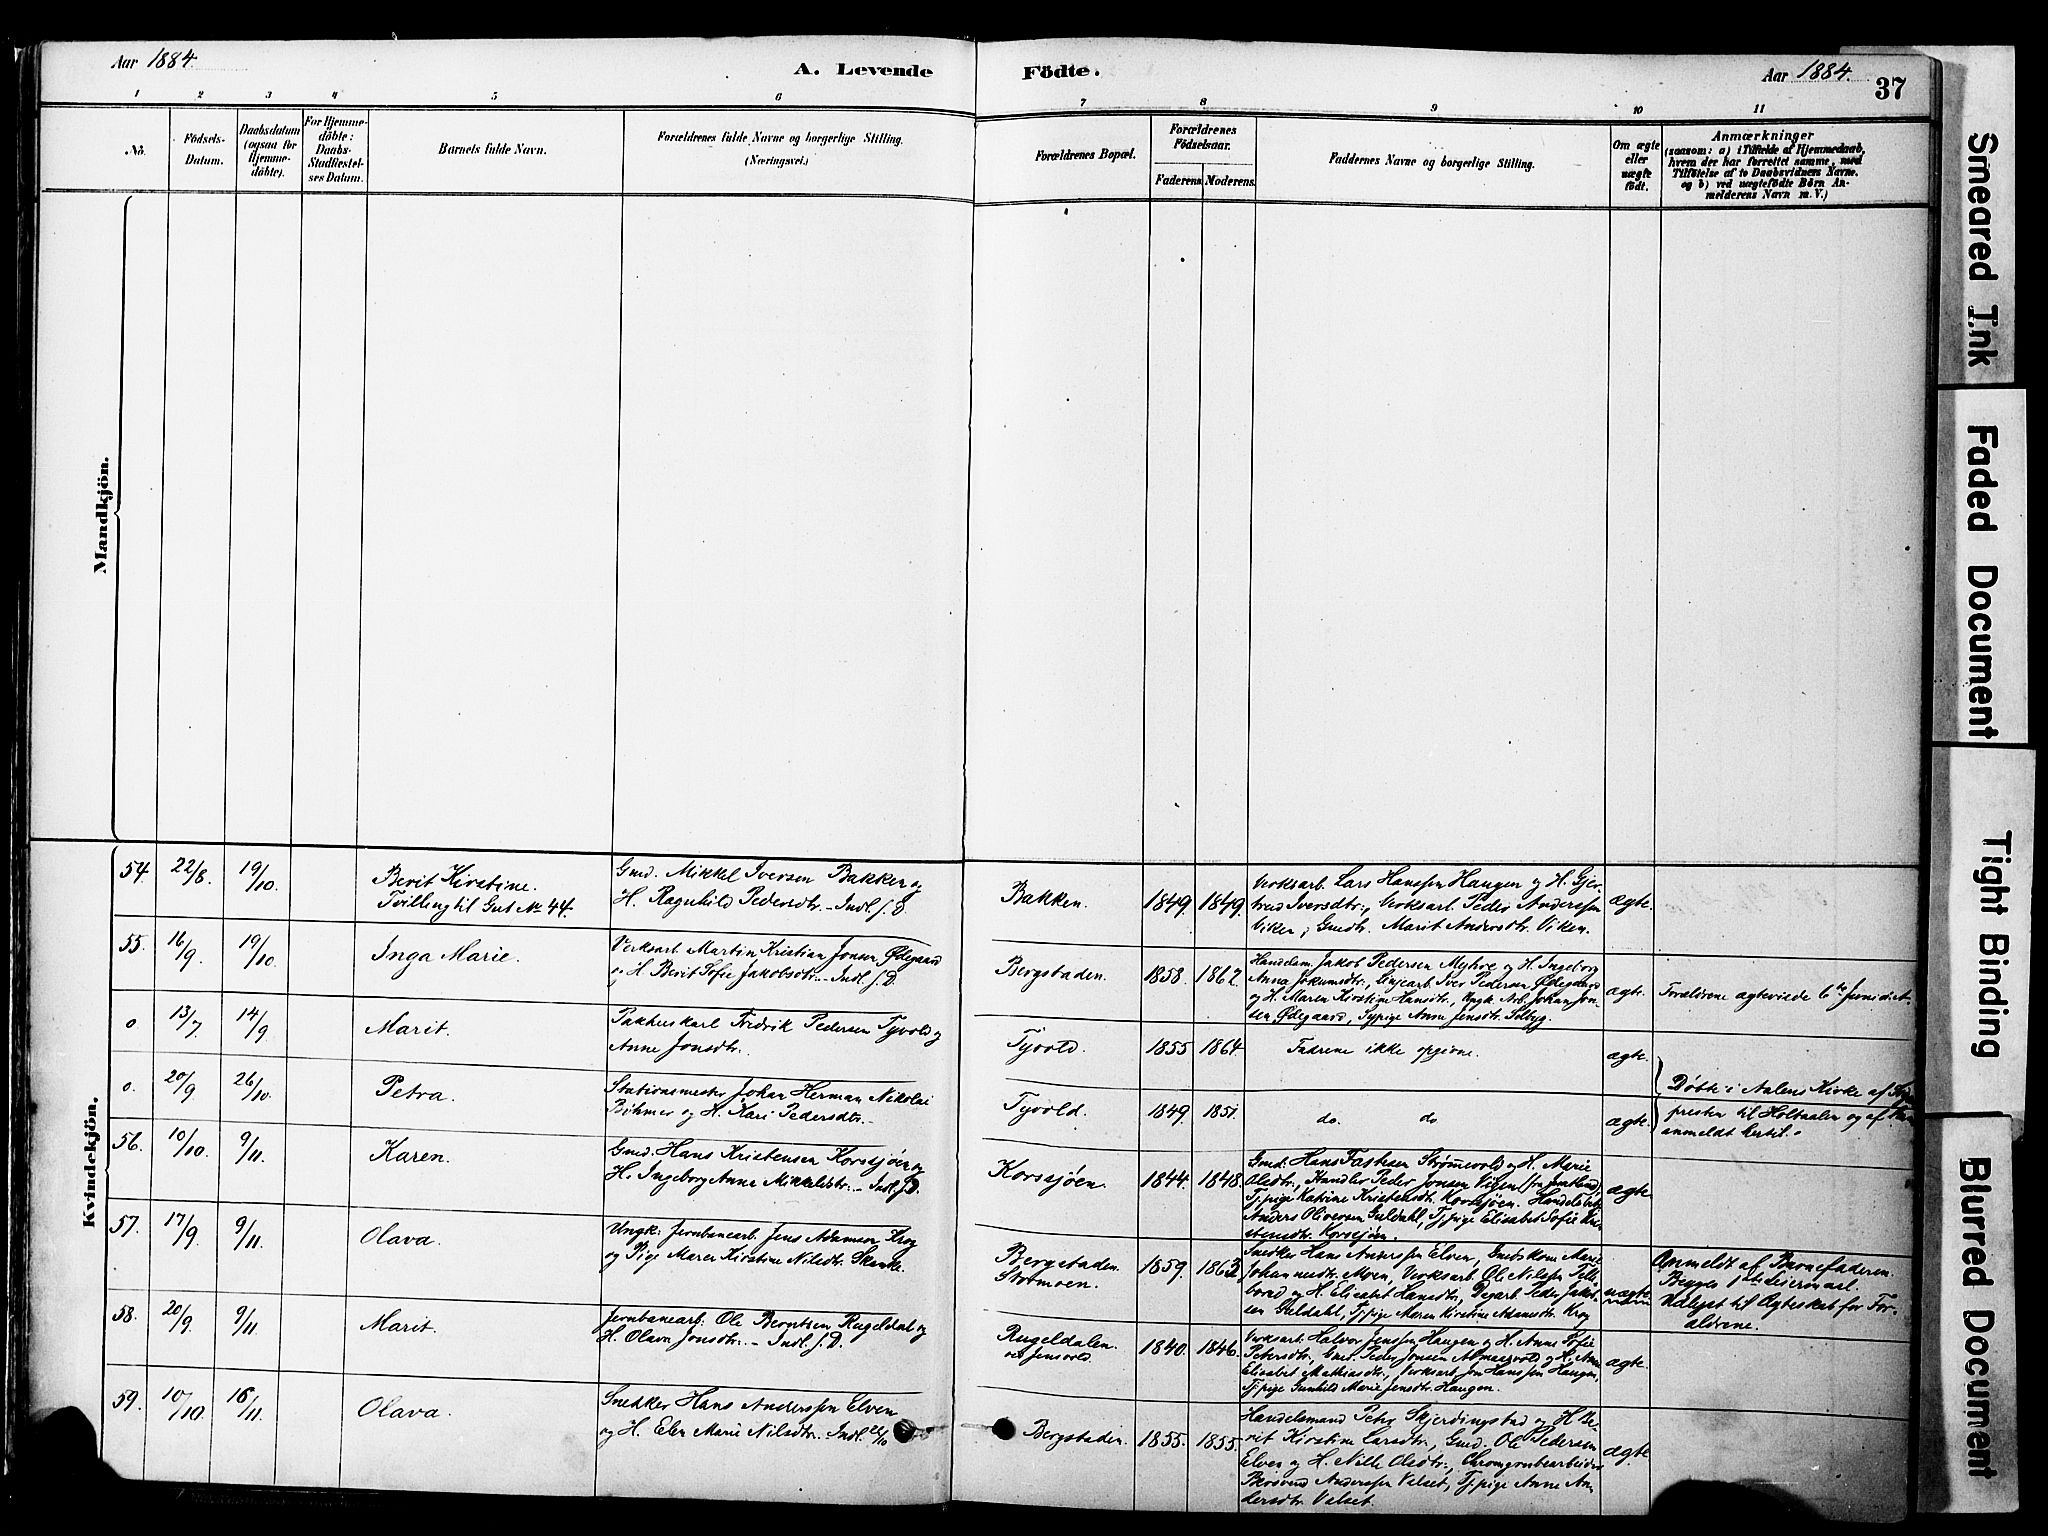 Aar 1884.
A. Levende Födte.
Aar 1884.
37
1 2 3 4 5 6 7 8 9 10 11
No.
Födsels-
Datum.
Daabsdatum
(ogsaa for
Hjemme-
døbte).
For Hjemme-
døbte:
Daabs-
Stadfæstel-
ses Datum.
Barnets fulde Navn.
Forældrenes fulde Navne og borgerlige Stilling.
(Næringsvei.)
Forældrenes Bopæl.
Forældrenes
Födselsaar.
Faderens. Moderens.
Faddernes Navne og borgerlige Stilling.
Om ægte
eller
uægte
födt.
Anmærkninger
(saasom: a) i Tilfælde af Hjemmedaab,
hvem der har forrettet samme, med
Tilföielse af to Daabsvidners Navne.
og b) ved uægtefödte Börn An-
melderens Navn m. V.)
Mandkjön.
Kvindekjön.
54. 22/8. 19/10.
Berit Kirstine.
Tvilling til Gut No 44.
Gmd. Mikkel Iversen Bakken og
H. Ragnhild Pedersdtr. – Indl. s. D.
Bakken. 1849. 1849.
Verksarb. Lars Hanssen Haugen og H. Gjer-
trud Iversdtr., Verksarb. Peder Anderssen
Viken, Gmdtr. Marit Andersdtr. Viken.
ægte.
55. 16/9. 19/10.
Inga Marie.
Verksarb. Martin Kristian Jonsen Ødegaard
og H. Berit Sofie Jakobsdtr. – Indl. s. D.
Bergstaden. 1858. 1862.
Handelsm. Jakob Pedersen Myhre og H. Ingeborg
Anna Jokumsdtr., Linjearb. Iver Pedersen Ødegaard
og H. Maren Kirstine Hansdtr., Ungk. Arb. Johan Jon-
sen Ødegaard, Sypige Anne Jensdtr. Solbyg.
ægte.
Forældrene ægteviede 6te Juni d. A.
o 13/7 14/9
Marit.
Pakhuskarl Fredrik Pedersen Tyvold og
Anne Jonsdtr.
Tyvold. 1855 1864.
Fadrene ikke opgivne.
ægte.
o. 20/9 26/10.
Petra.
Stationsmester Johan Herman Nikolai
Bøhmer og H. Kari Pedersdtr. –
Tyvold. 1849. 1851.
do. do
ægte.
Døbte i Aalens Kirke af
presten til Holtaalen og af
anmeldt hertil.
56. 10/10. 9/11.
Karen.
Gmd. Hans Kristensen Korssjøen og
H. Ingeborg Anna Mikkelsdtr. – Indl. s. D.
Korssjøen. 1844. 1848.
Gmd. Hans Fastesen Strømvold og H. Marie
Olsdtr., Handler Peder Jonsen Vigen
Tj.pige Katrine Kristensdtr. Korssjøen. Handelsbetj.
Anders Oliversen Guldahl, Tj.pige Elisabet Sofie Kri-
stensdtr. Korssjøen.
ægte
57. 17/9. 9/11.
Olava.
Ungk. Jernbanearb. Jens Adamsen Krog
og Pige Maren Kirstine Nilsdtr. Skanke.
Bergstaden.
Strømoen.
1859. 1863
Snedker Hans Anderssen Elven, Gmdskone Marie
Johannesdtr. Moen, Verksarb. Ole Nilssen
og H. Elisabet Hansdtr., Dagarb. Peder Jakob-
sen Guldahl, Tj.pige Maren Kirstine Adamsdtr. Krog
uægte
Anmeldt af Barnefaderen.
Begges 1ste Leiermaal.
Udlyst til Ægteskab for For-
ældrene.
58. 20/9. 9/11.
Marit.
Jernbanearb. Ole Berntsen Rugeldal og
H. Olava Jonsdtr. – Indl. s. D.
Rugeldalen.
ved Jensvold.
1840. 1846.
Verksarb. Halvor Jenssen Haugen og H. Anne Sofie
Petersdtr., Gmd. Peder Jonsen Almaasvold og H. Anne
Elisabet Mathiasdtr., Verksarb. Jon Hanssen Haugen,
Tj.pige Gunhild Marie Jensdtr. Haugen.
ægte.
59. 10/10. 16/11.
Olava.
Snedker Hans Anderssen Elven
og H. Elen Marie Nilsdtr. Indl. 22/10
Bergstaden. 1855. 1855.
Handelsmand Petr. Skjerdingstad og H. Be-
rit Kirstine Larsdtr., Gmd. Ole Pedersen
Elven og H. Nille Olsdtr., Chromgrubearbeider
Anderssen Valset, Tj.pige Anne An-
dersdtr. Valset.
ægte.
Smeared Ink
Faded Document
Tight Binding
Blurred Document